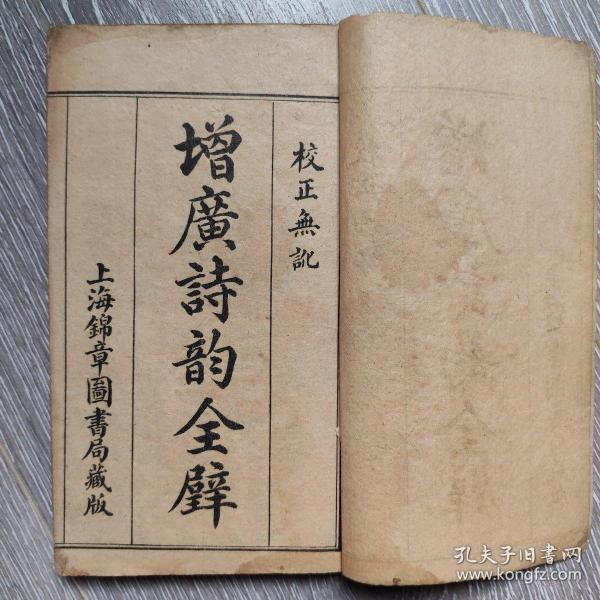 校正無訛
增廣詩韵全璧
上海錦章圖書局藏版
孔夫子旧书网
www.kongfz.com